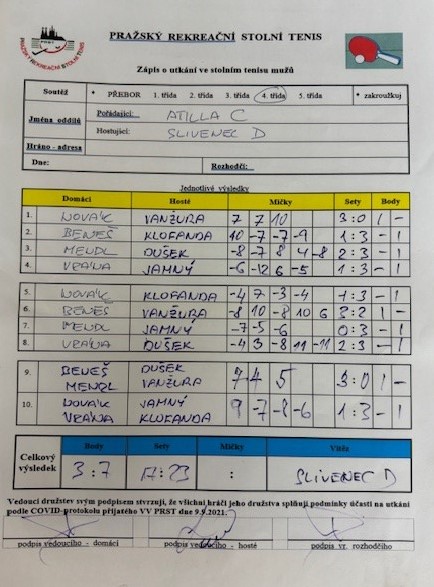 PRAŽSKÝ REKREAČNÍ STOLNÍ TENIS
PRST
PRAŽSKÝ REKREAČNÍ STOLNÍ TENIS
Zápis o utkání ve stolním tenisu mužů
Soutěž • PŘEBOR 1. třída 2. třída 3. třída 4. třída 5. třída • zakroužkuj
Jména oddílů Pořádající: ATILLA C
Hostující: SLIVENEC D
Hráno - adresa
Dne: Rozhodčí:
Jednotlivé výsledky
Domácí Hosté Míčky Sety Body
1. NOVÁK VANŽURA 7 7 10 3:0 1 -
2. BENEŠ KLOFANDA 10 -7 -7 -9 1:3 - 1
3. MENDL DUŠEK -8 -7 8 4 -8 2:3 - 1
4. VRÁNA JAMNÝ -6 -12 6 -5 1:3 - 1
5. NOVÁK KLOFANDA -4 7 -3 -4 1:3 - 1
6. BENEŠ VANŽURA -8 10 -8 10 6 3:2 1 -
7. MENDL JAMNÝ -7 -5 -6 0:3 - 1
8. VRÁNA DUŠEK -4 3 -8 11 -11 2:3 - 1
9. BENEŠ DUŠEK
MENDL VANŽURA 7 4 5 3:0 1 -
10. NOVÁK JAMNÝ
VRÁNA KLOFANDA 9 -7 -8 -6 1:3 - 1
Celkový výsledek Body Sety Míčky Vítěz
3:7 17:23 : SLIVENEC D
Vedoucí družstev svým podpisem stvrzují, že všichni hráči jeho družstva splňují podmínky účasti na utkání
podle COVID-protokolu přijatého VV PRST dne 9.9.2021.
podpis vedoucího - domácí podpis vedoucího - hosté podpis vr. rozhodčího